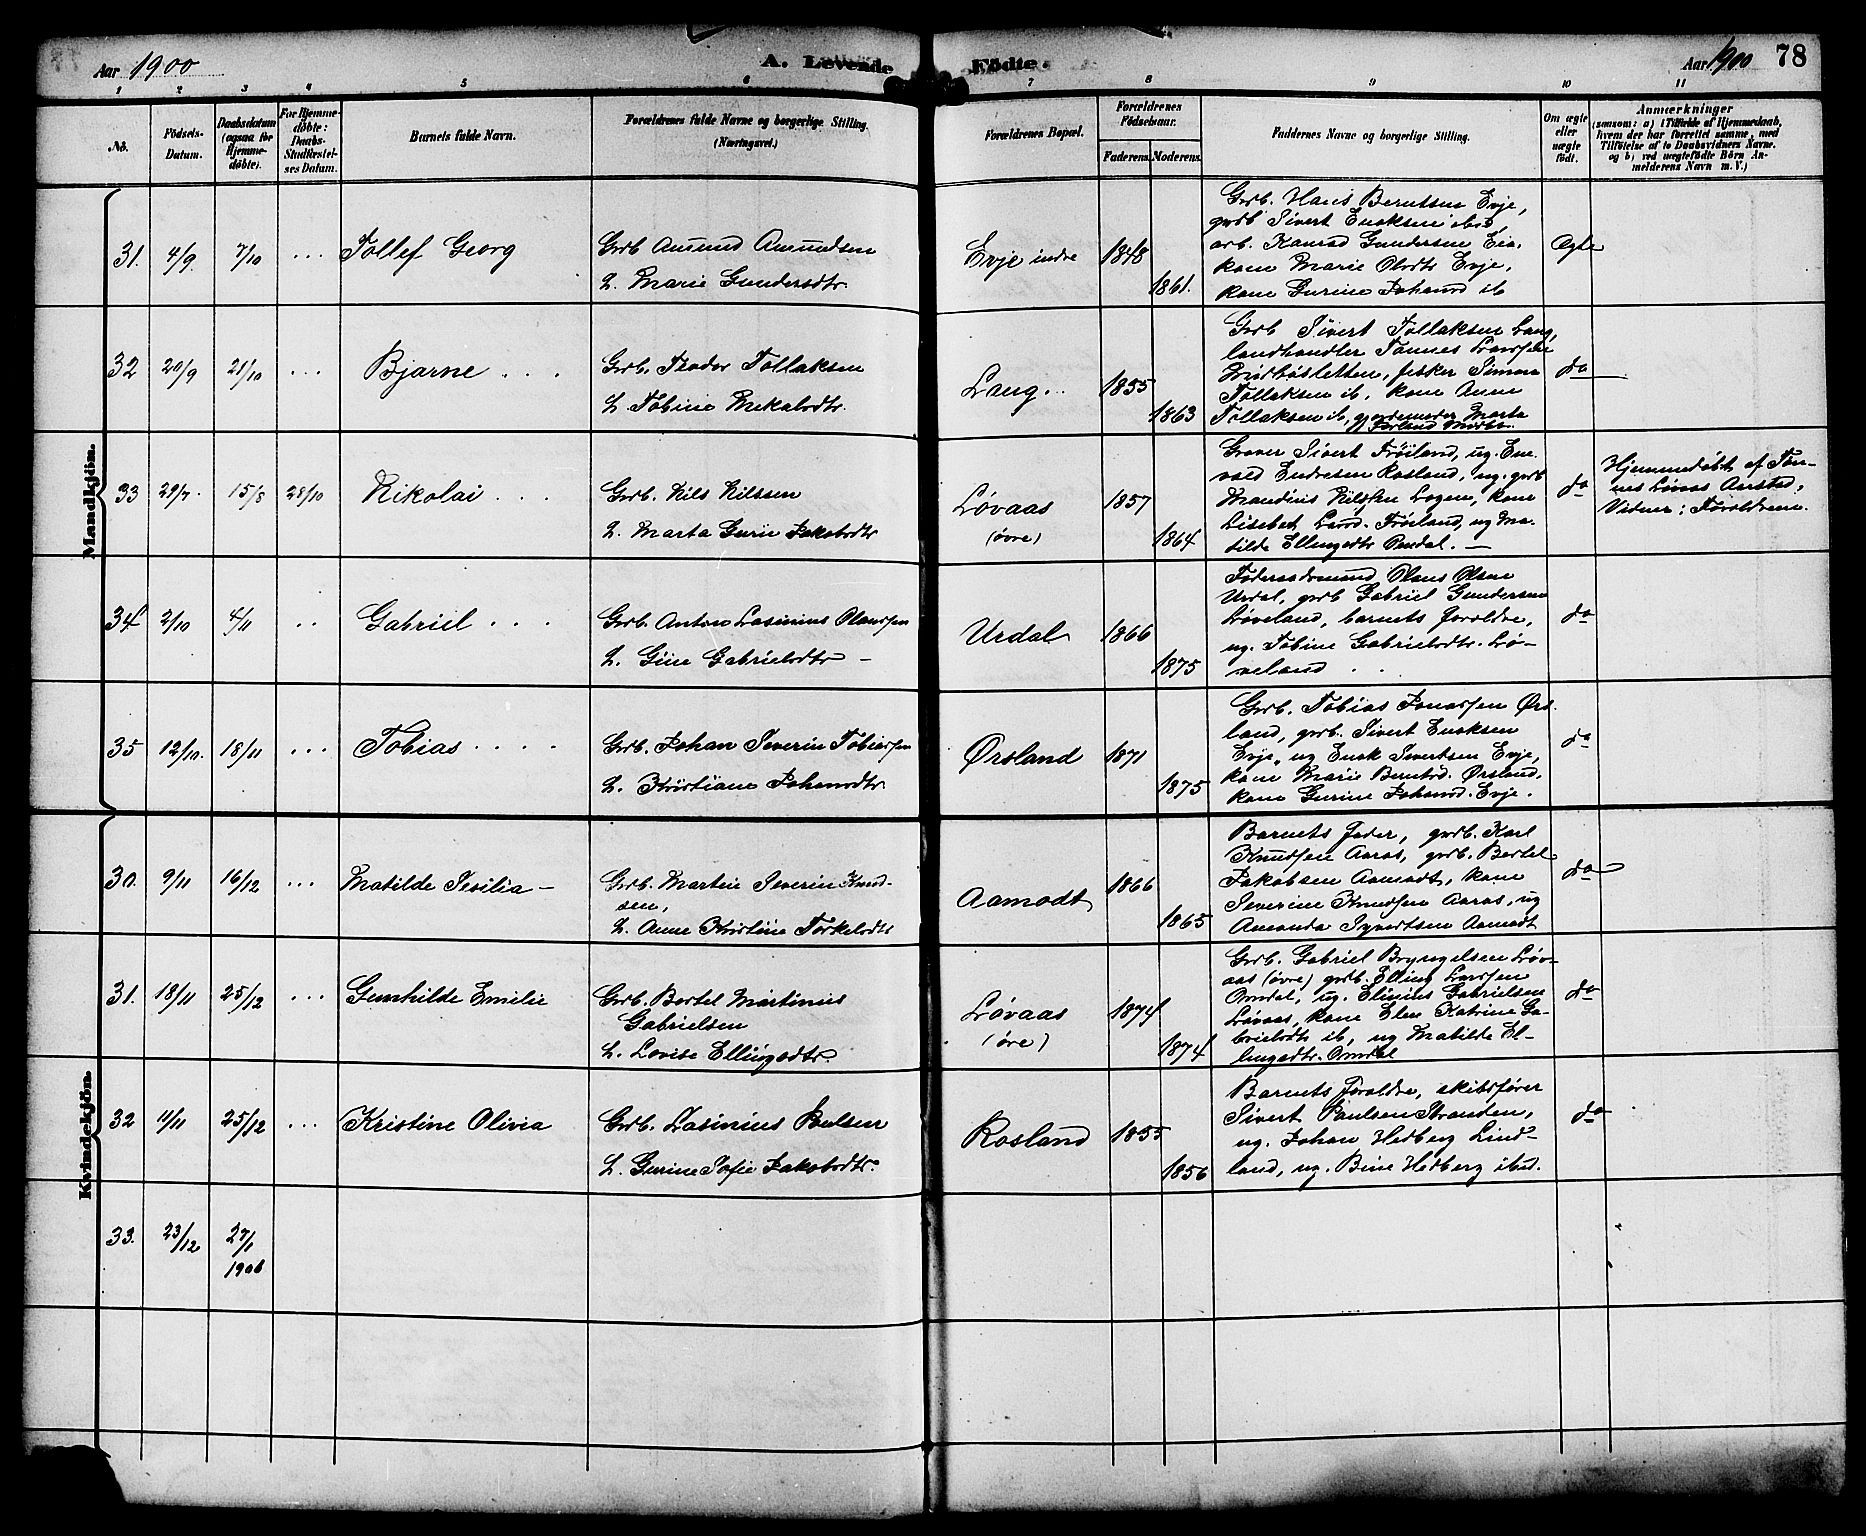 Aar 1900
A. Levende Födte.
Aar 1900 78
1 2 3 4 5 6 7 8 9 10 11
No.
Födsels-Datum.
Daabsdatum (ogsaa for Hjemme-döbte).
For Hjemme-döbte: Daabs-Stadfæstel-ses Datum.
Barnets fulde Navn.
Forældrenes fulde Navne og borgerlige Stilling. (Næringsvei.)
Forældrenes Bopæl.
Forældrenes Födselsaar.
Faderens. Moderens.
Faddernes Navne og borgerlige Stilling.
Om ægte eller uægte födt.
Anmærkninger
(saasom: a) i Tilfælde af Hjemmedaab,
hvem der har forrettet samme, med
Tilföielse af to Daabsvidners Navne.
og b) ved uægtefödte Börn An-
melderens Navn m. V.)
Mandkjön.
31. 4/9. 7/10 ... Tollef Georg
Grdb. Amund Amundsen
h. Marie Gundersdtr.
Evje indre 1848
1861.
Grdb. Hans Berntsen Evje,
grdb Sivert Enoksen ibid,
arb. Konrad Gundersen Eia.
kone Marie Olsdtr Evje,
kone Gurine Johansd ib
Ægte
32 20/9 21/10 ... Bjarne ...
Grdb. Theodor Tollaksen
h. Tobine Mikalsdtr.
Lang.. 1855
1863
Grdb Sivert Tollaksen Lang,
landhandler Tønnes Larssen
fisker Simon
Tollaksen ib, kone Anne
Tollaksen ib, gjordemoder Marta
do
33 29/7. 15/8 28/10 Nikolai ...
Grdb. Nils Nilssen
h. Marta Gurie Jakobsdtr
Løvaas
(øvre)
1857
1864
Graver Sivert Frøiland, ug. Ene-
vald Endresen Rosland, ug. grdb
Mandius Nilssen Logen, kone
Lisebet Laud. Frøiland, ug Ma-
tilde Ellingsdtr Omdal. —
do
Hjemmedøbt af Tøn-
nes Løvaas Aarstad,
Vidner: Forældrene.
34 2/10 4/11 .. Gabriel ...
Grdb. Anton Lasinius Olaussen
h. Gine Gabrielsdtr —
Urdal 1866
1875
Føderaadsmand Olaus Olsen
Urdal, grdb Gabriel Gundersen
Løveland, barnets forældre,
ug. Tobine Gabrielsdtr. Lø-
veland
do
35 12/10. 18/11 ... Tobias ....
Grdb. Johan Severin Tobiassen
h. Kristiane Johansdtr.
Ørsland 1871
1875
Grdb. Tobias Jonassen Ørs-
land, grdb. Sivert Enoksen
Evje, ug Enok Sivertsen Evje,
kone Marie Berntsd. Ørsland,
kone Gurine Johansd. Evje.
do
Kvindekjön.
30. 9/11 16/12 ... Matilde Sesilia —
Grdb. Martin Severin Knud-
sen,
h. Anne Kristine Torkelsdtr
Aamodt 1866
1865
Barnets fader, grdb. Karl
Knudsen Aaros, grdb. Bertel
Jakobsen Aamodt, kone
Severine Knudsen Aaros, ug
Amanda Syvertsen Aamodt
do
31. 18/11 25/12 ... Gunhilde Emilie
Grdb. Bertel Martinius
Gabrielsen
h. Lovise Ellingsdtr.
Løvaas
(øre)
1874
1874
Grdb. Gabriel Bryngelsen Løv-
aas (øvre) grdb. Elling Larssen
Omdal, ug. Elinius Gabrielsen
Løvaas, kone Elen Katrine Ga-
brielsdtr ib, ug Matilde El-
lingsdtr. Omdal
do
32 11/11 25/12 ... Kristine Olivia
Grdb. Lasinius Paulsen
h. Gurine Sofie Jakobsdtr.
Rosland 1855
1856
Barnets forældre, skibsfører
Sivert Paulsen Stranden,
ug. Johan Hedberg Lind-
land, ug. Bine Hedberg ibid.
do
33. 23/12 27/1
1906